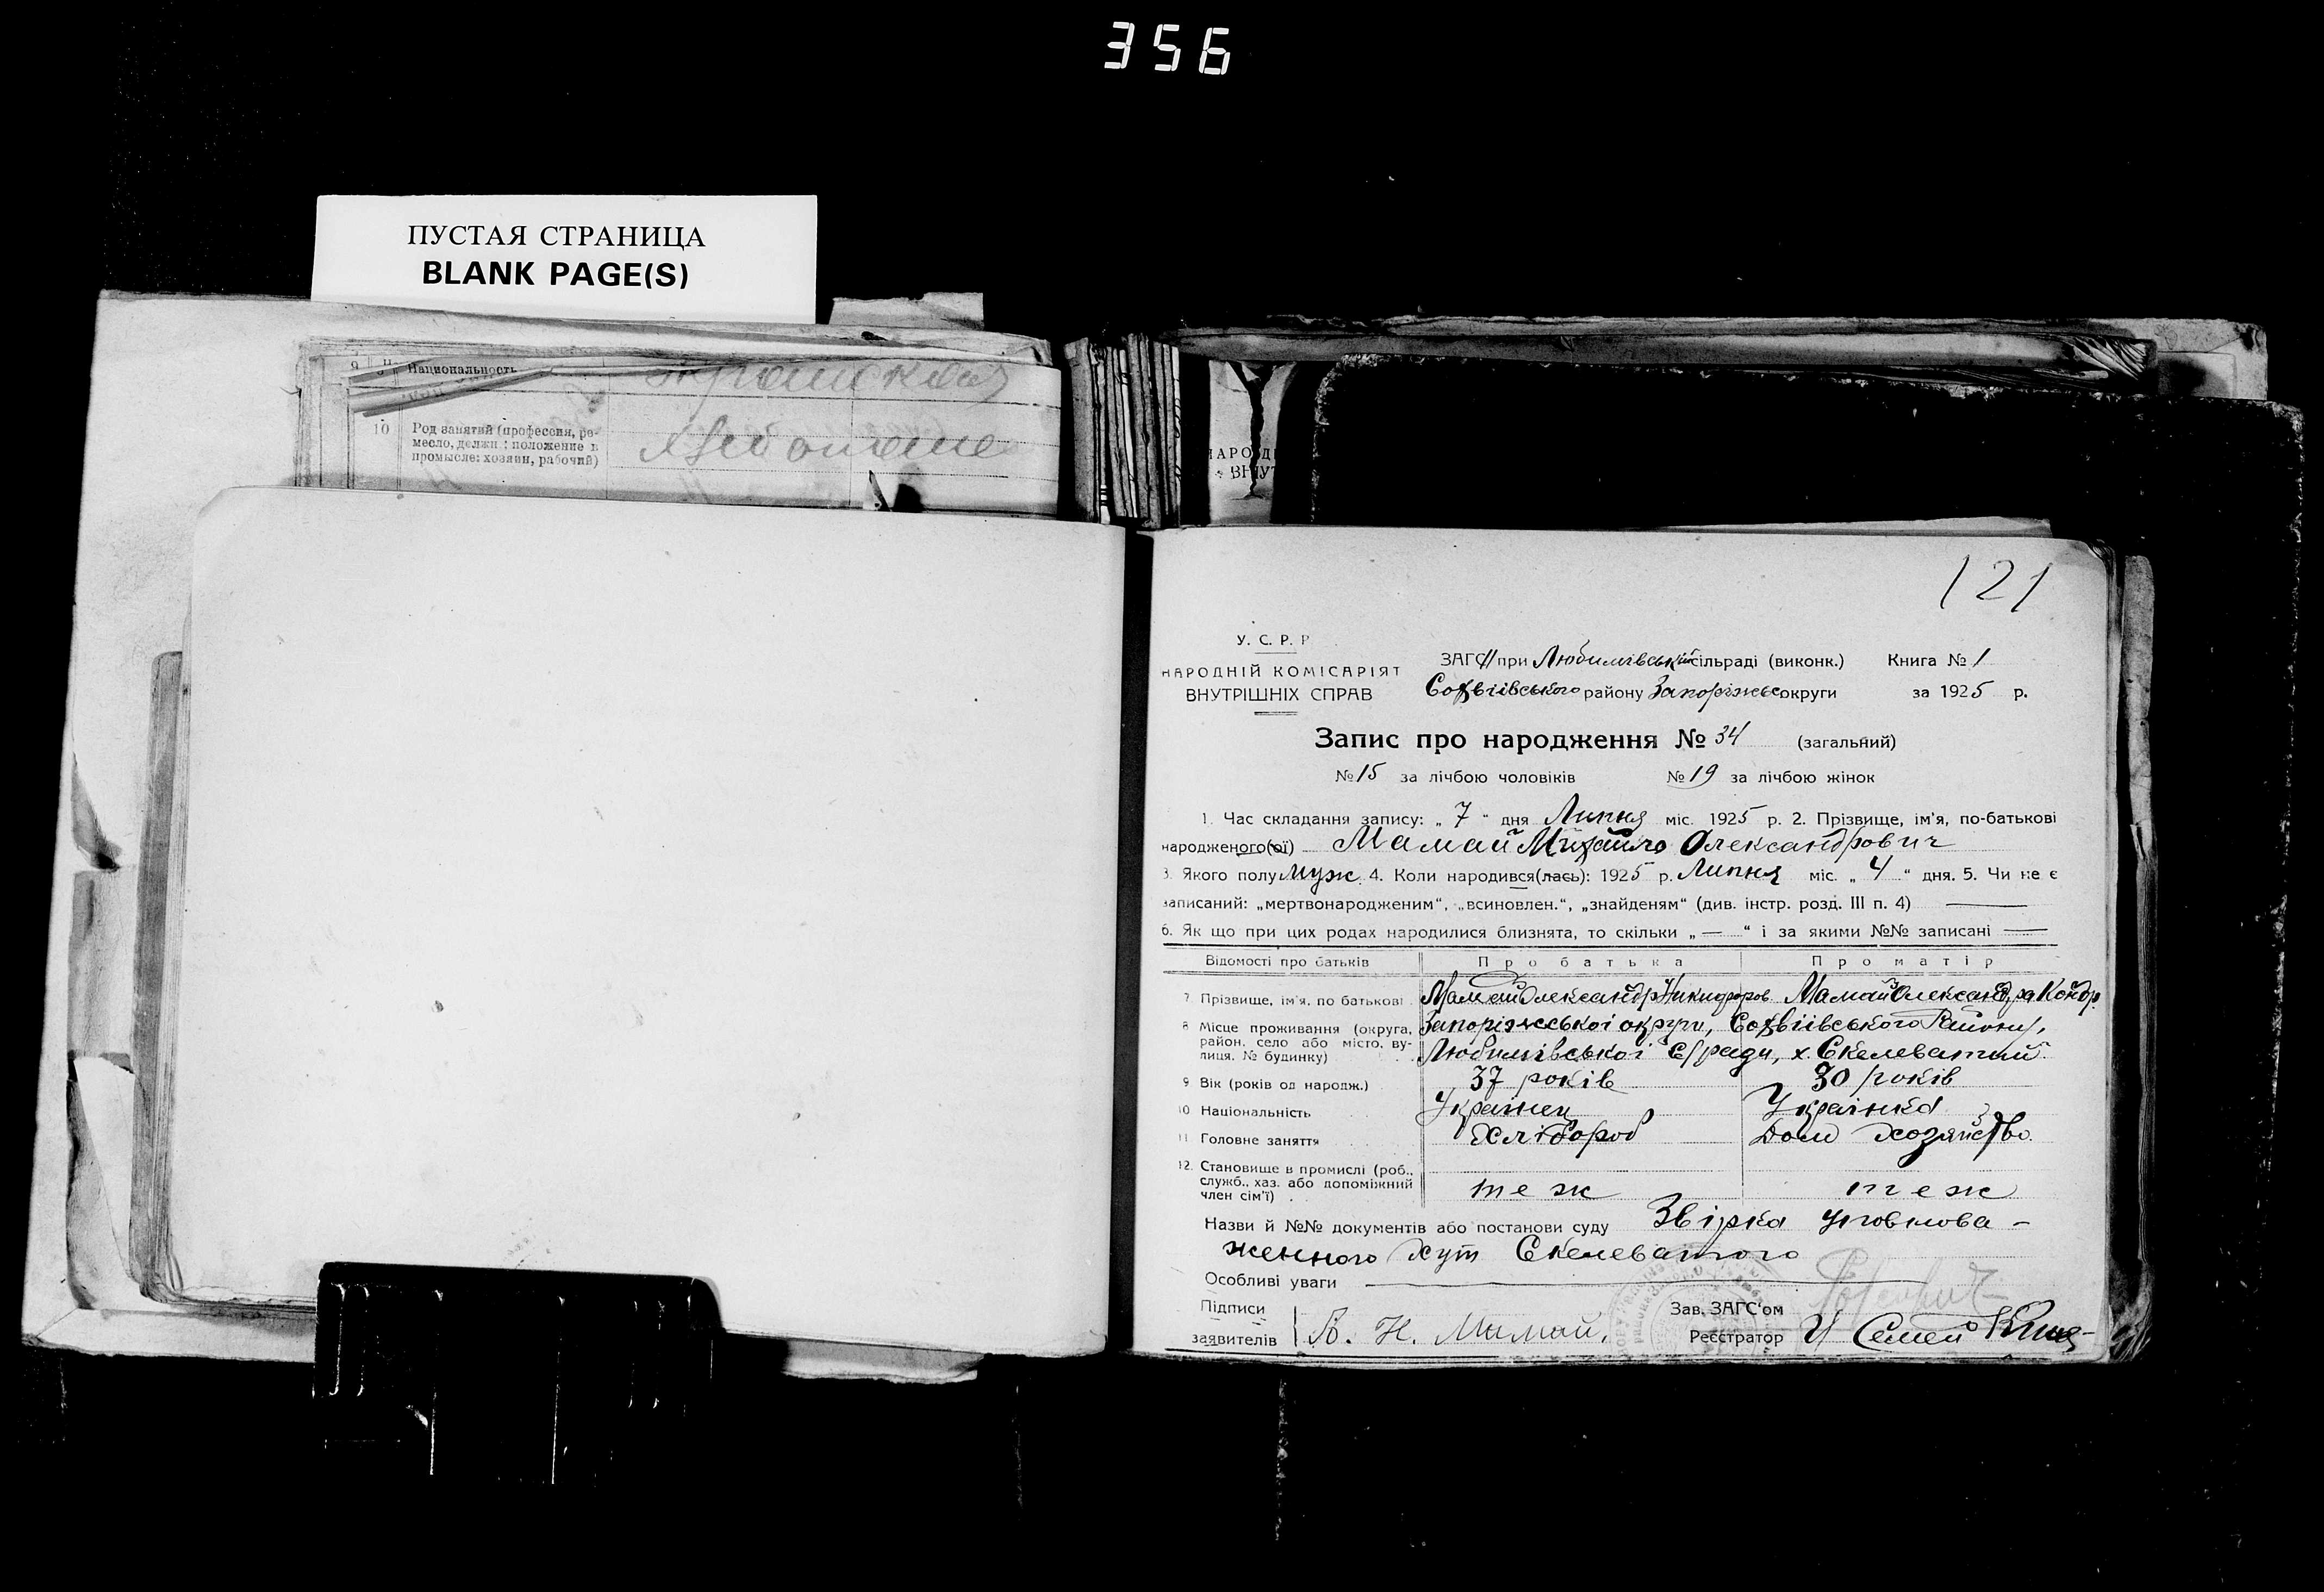 356
ПУСТАЯ СТРАНИЦА
BLANK PAGE(S)
9 Национальность
10 Род занятий (профессия, ре-
месло, должн.; положение в
промысле: хозяин, рабочий)
121
У. С. Р. Р
НАРОДНІЙ КОМІСАРІЯТ
ВНУТРІШНІХ СПРАВ
ЗАГС при Любимівській сільраді (виконк.) Книга № 1
Софіівського району Запоріжськ округи за 1925 р.
Запис про народження № 34 (загальний)
№ 15 за лічбою чоловіків № 19 за лічбою жінок
1. Час складання запису: „ 7 “ дня Липня міс. 1925 р. 2. Прізвище, ім'я, по-батькові
народженого(ої) Мамай Михайло Олександрович
3. Якого полу муж. 4. Коли народився(лась): 1925 р. Липня міс. „ 4 “ дня. 5. Чи не є
записаний: „мертвонародженим“, „всиновлен.“, „знайденям“ (див. інстр. розд. III п. 4) —
6. Як що при цих родах народилися близнята, то скільки „ — “ і за якими №№ записані —
Відомості про батьків Про батька Про матір
7 Прізвище, ім'я, по батькові Мамай Олександр Никифоров Мамай Олександра Кондр.
8 Місце проживання (округа, район, село або місто, ву-
лиця, № будинку)
Запоріжської округи, Софіівського Району,
Любимівської с/ради, х. Скелеватий
9 Вік (років од народж.) 37 років 30 років
10 Національність Українец Українка
11 Головне заняття Хлібороб Дом хозяйство.
12. Становище в промислі (роб.,
служб., хаз. або допоміжний
член сім'ї) теж теж
Назви й №№ документів або постанови суду Звірка уповнова-
женного хут Скелеватого
Особливі уваги —
Підписи
заявителів А. Н. Мамай.
Зав. ЗАГС'ом
Реєстратор